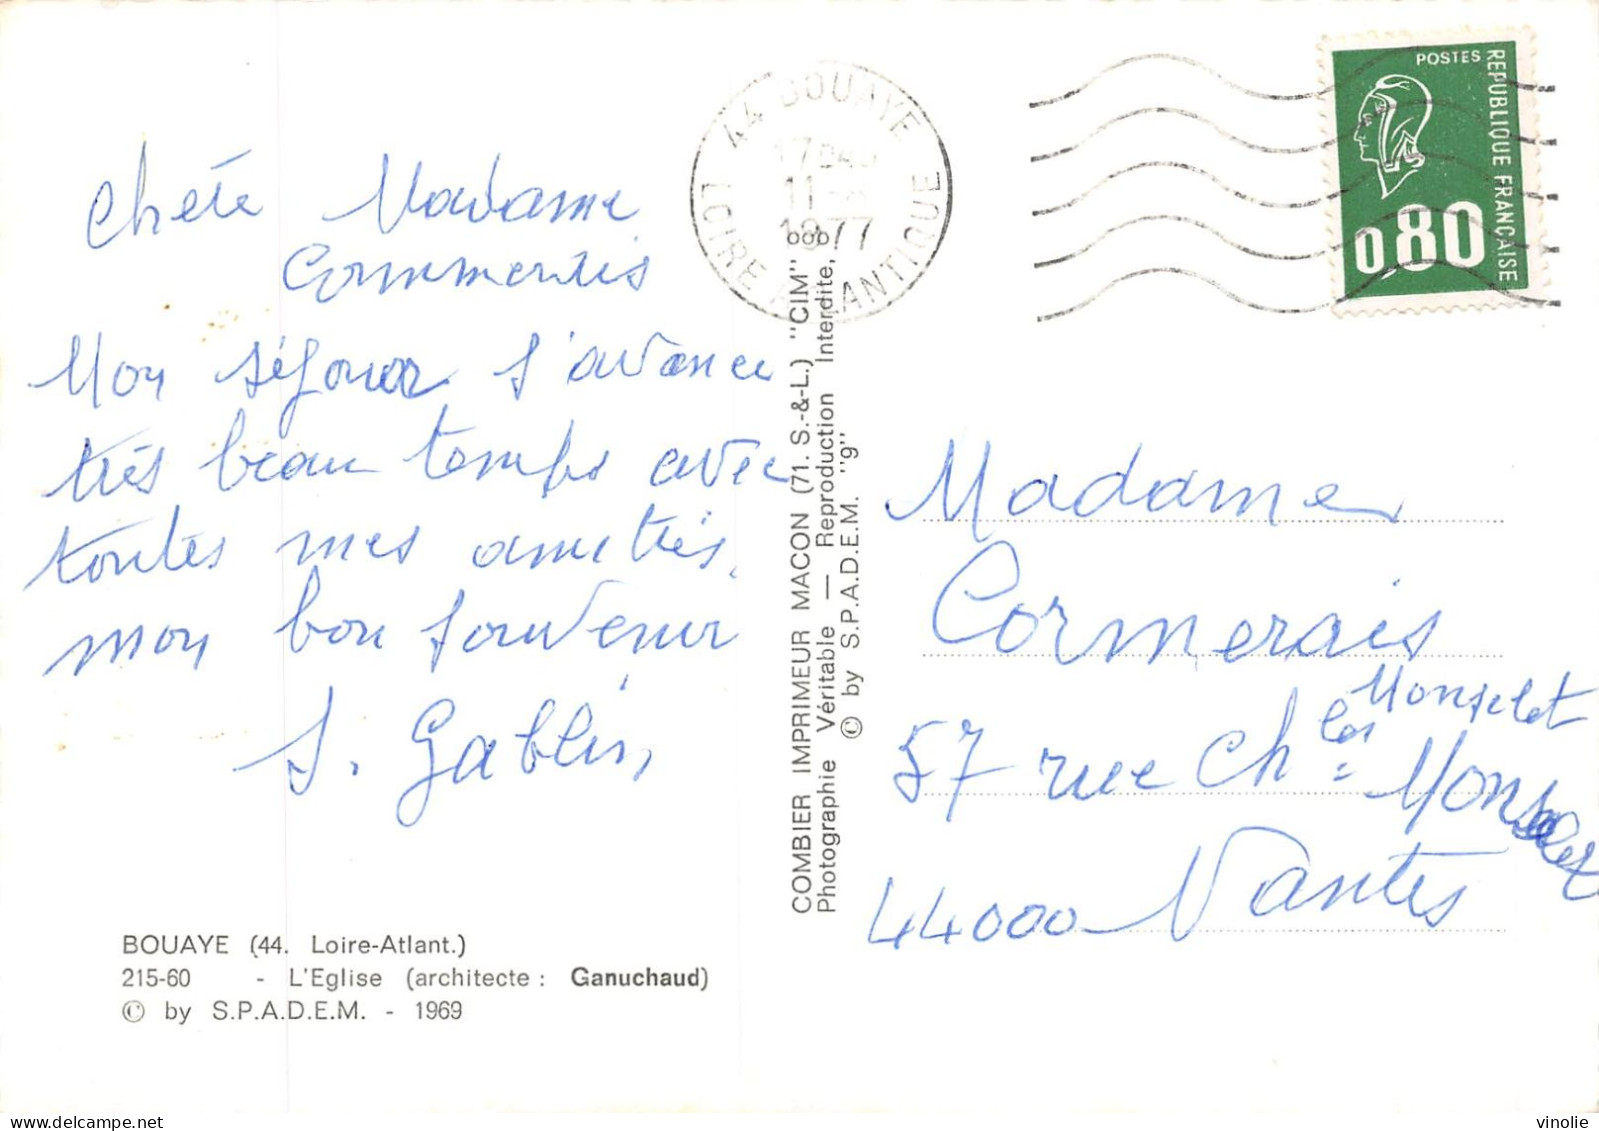 Chère Madame
Mon séjour s'avance
très beau temps avec
toutes mes amitiés.
mon bon souvenir
S. Gablin
BOUAYE (44. Loire-Atlant.)
215-60 - L'Eglise (architecte : Ganuchaud)
© by S.P.A.D.E.M. - 1969
COMBIER IMPRIMEUR MACON (71. S.-&-L.) "CIM"
Photographie Véritable — Reproduction Interdite,
© by S.P.A.D.E.M. "g"
44 BOUAYE
17
11
1977
LOIRE ATLANTIQUE
POSTES
REPUBLIQUE FRANÇAISE
0,80
Madame
Cormerais
Monselet
57 rue Chles
44000 Nantes
vinolie